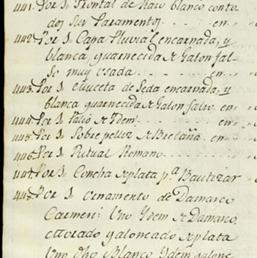 441. Por 1. Frontal de Raso blanco con tu
dos sus Paramentos ... en
442. Por 1. Capa Pluvial encarnada, y
blanca guarnecida de Galon fal
so muy usada ... en
443. Por 1. de Seda encarnada, y
blanca guarnecida de Galon falso en
444. Por 1. Palio de Idem ... en
445. Por 1. Sobrepelliz de Bretaña ... en
446. Por 1. Ritual Romano
447. Por 1. Concha de plata pª Bautizar
448. Por 1. ornamento de Damasco
Carmesi: Uno Idem de Damasco
galoneado de plata
Uno dho Blanco Idem galone